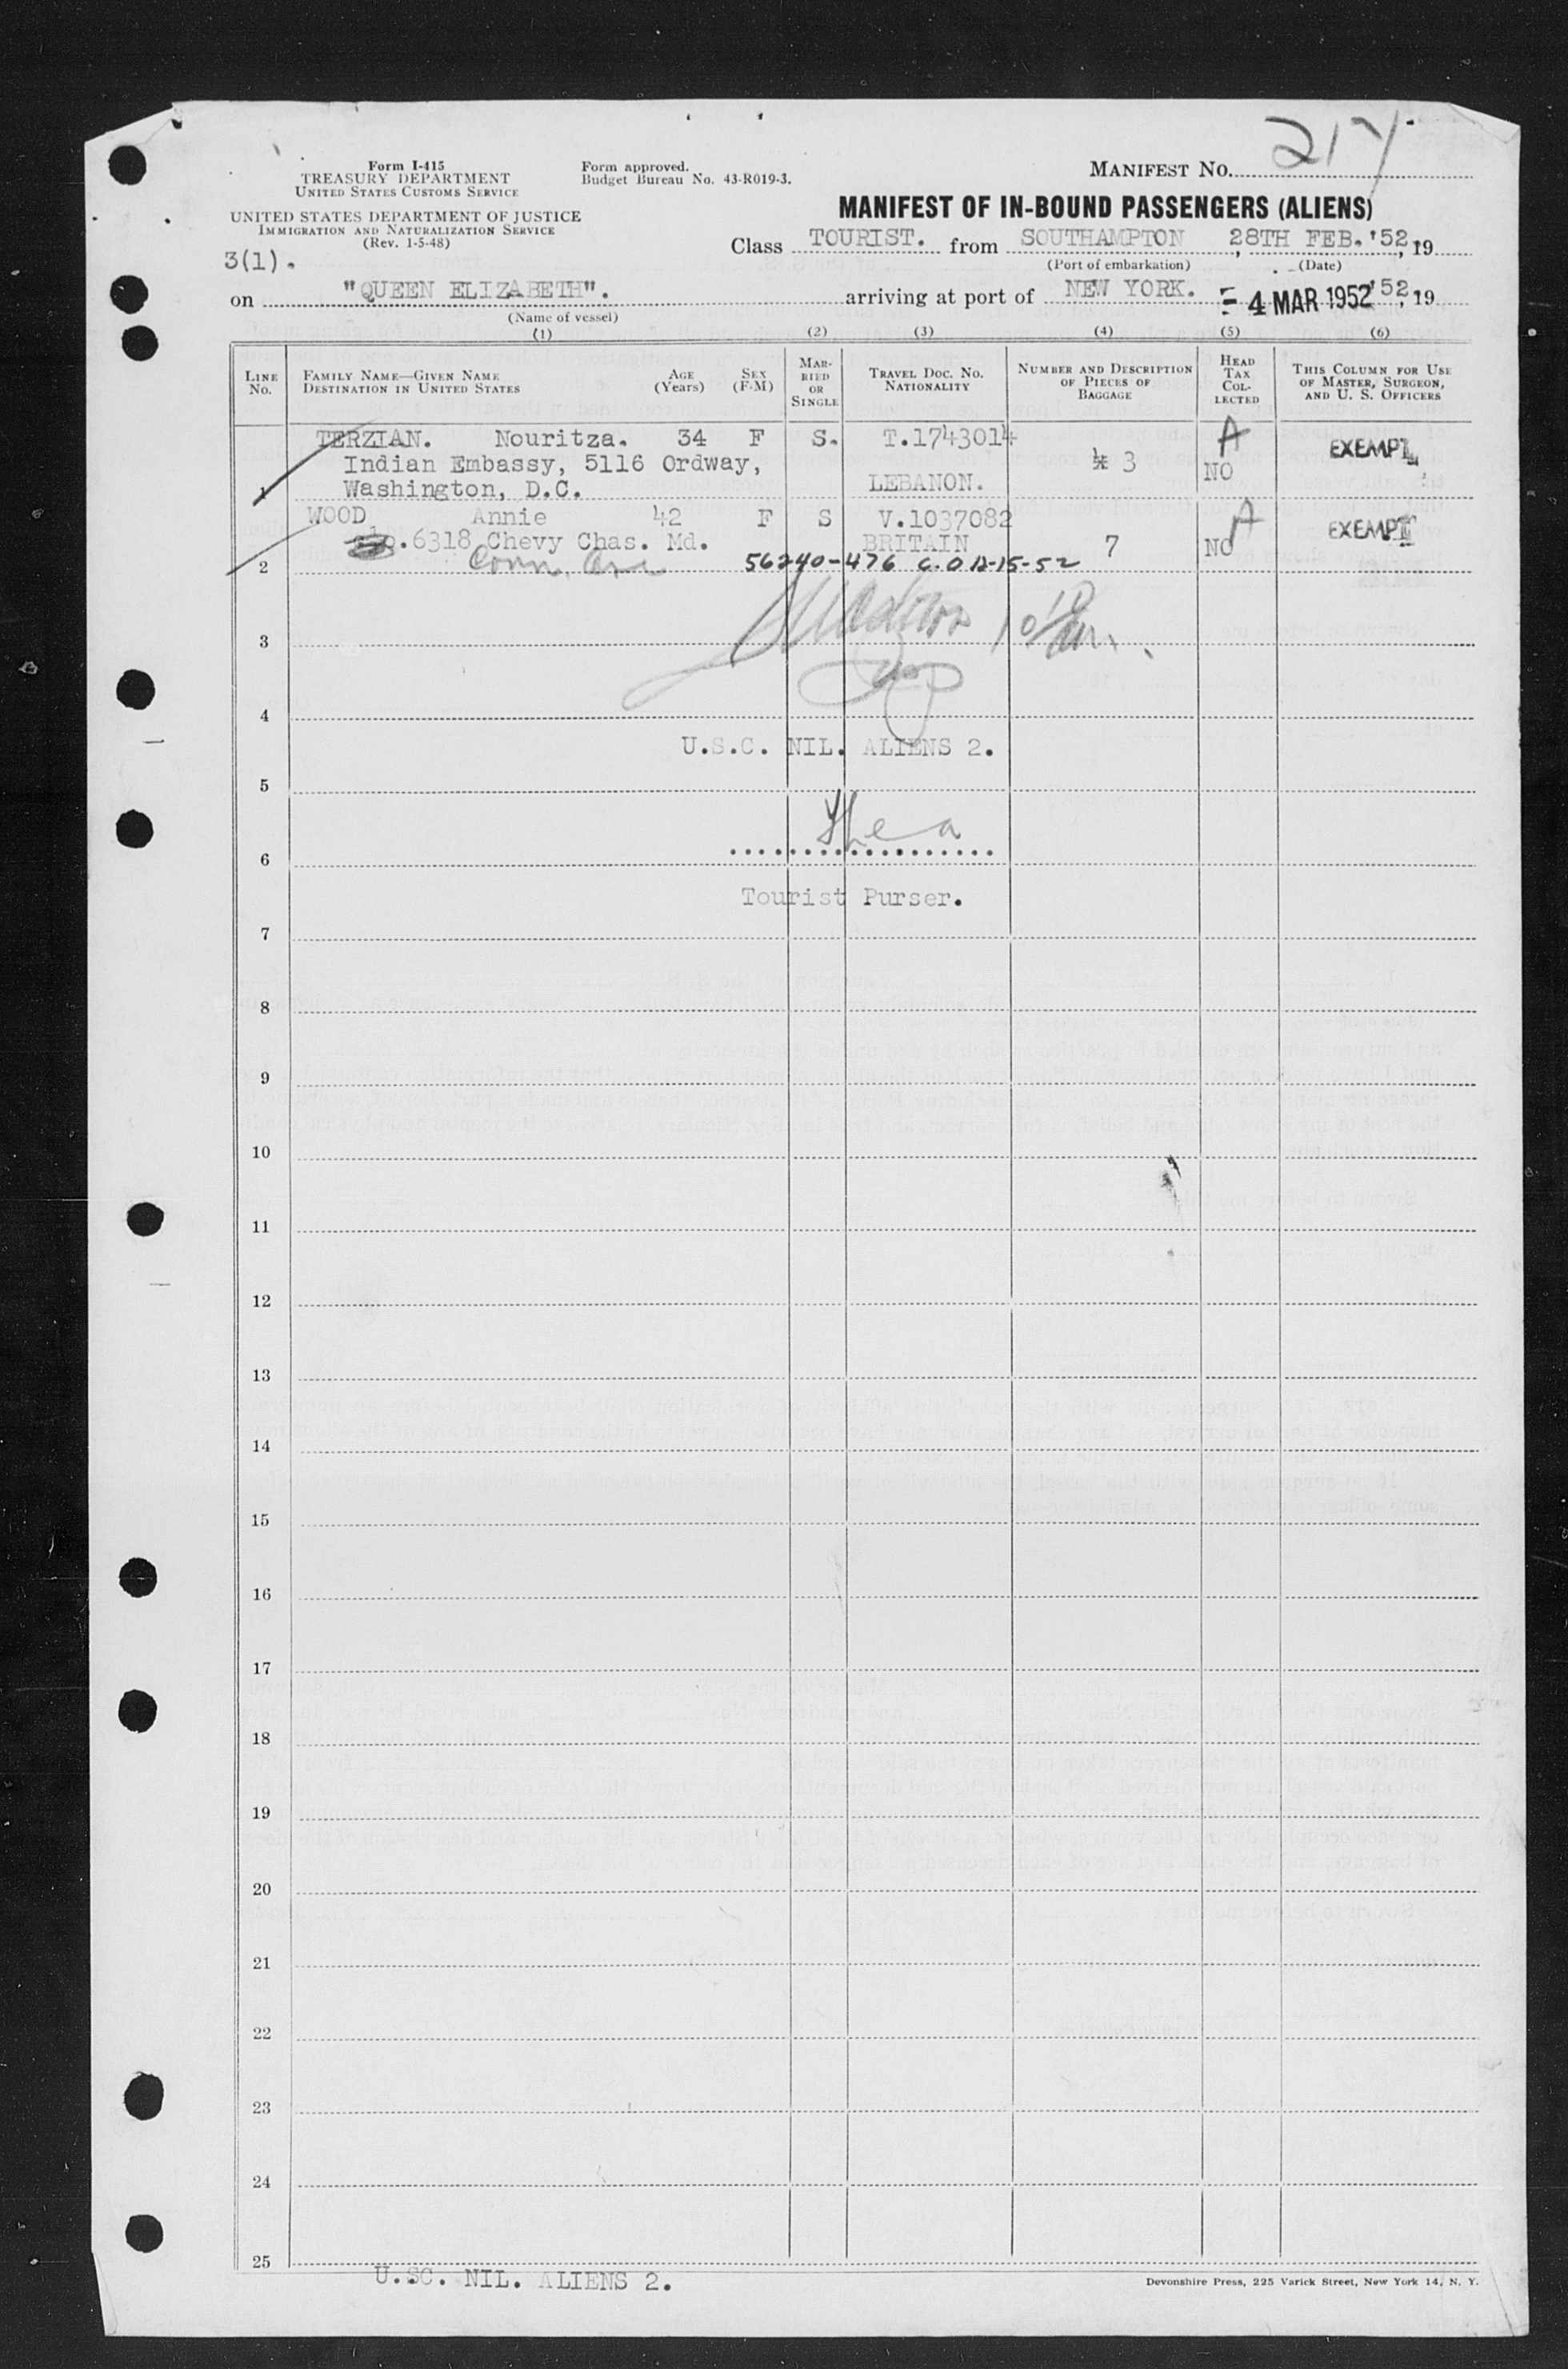 217
Form I-415
TREASURY DEPARTMENT
UNITED STATES CUSTOMS SERVICE
Form approved.
Budget Bureau No. 43-R019-3.
MANIFEST NO.
UNITED STATES DEPARTMENT OF JUSTICE
IMMIGRATION AND NATURALIZATION SERVICE
(Rev. 1-5-48)
MANIFEST OF IN-BOUND PASSENGERS (ALIENS)
3(1).
Class TOURIST. from SOUTHAMPTON, 28TH FEB. '52, 19
(Port of embarkation) (Date)
on "QUEEN ELIZABETH". arriving at port of NEW YORK. - 4 MAR 1952 '52, 19
(Name of vessel)
(1) (2) (3) (4) (5) (6)
LINE NO.
FAMILY NAME—GIVEN NAME
DESTINATION IN UNITED STATES
AGE (Years)
SEX (F-M)
MARRIED OR SINGLE
TRAVEL DOC. NO.
NATIONALITY
NUMBER AND DESCRIPTION OF PIECES OF BAGGAGE
HEAD TAX COLLECTED
THIS COLUMN FOR USE OF MASTER, SURGEON, AND U. S. OFFICERS
TERZIAN. Nouritza. 34 F S. T.1743014 A EXEMPT
Indian Embassy, 5116 Ordway, 3 NO
1 Washington, D.C. LEBANON.
WOOD Annie 42 F S V.1037082 A EXEMPT
.6318 Chevy Chas. Md. BRITAIN 7 NO
2 Conn. Ave 56240-476 C.O 12-15-52
3
4
U.S.C. NIL. ALIENS 2.
5
6
Tourist Purser.
7
8
9
10
11
12
13
14
15
16
17
18
19
20
21
22
23
24
25
U.SC. NIL. ALIENS 2.
Devonshire Press, 225 Varick Street, New York 14, N. Y.